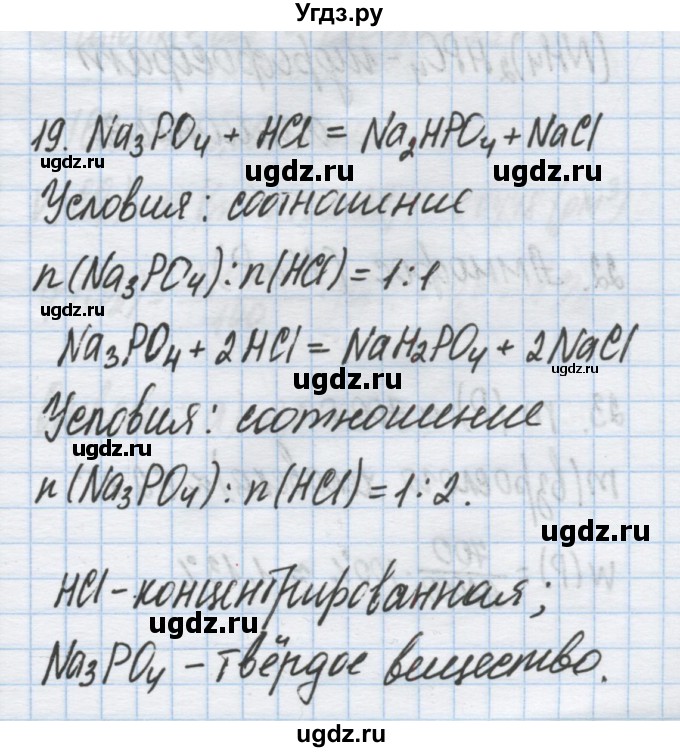 Угдз.ру
19. Na₃PO₄ + HCl = Na₂HPO₄ + NaCl
ugdz.ru ugdz.ru
Условия: соотношение
ugdz.ru
n(Na₃PO₄) : n(HCl) = 1:1
ugdz.ru
Na₃PO₄ + 2HCl = NaH₂PO₄ + 2NaCl
ugdz.ru
Условия: соотношение
ugdz.ru
n(Na₃PO₄) : n(HCl) = 1:2.
ugdz.ru
HCl - концентрированная;
ugdz.ru
Na₃PO₄ - твёрдое вещество.
ugdz.ru